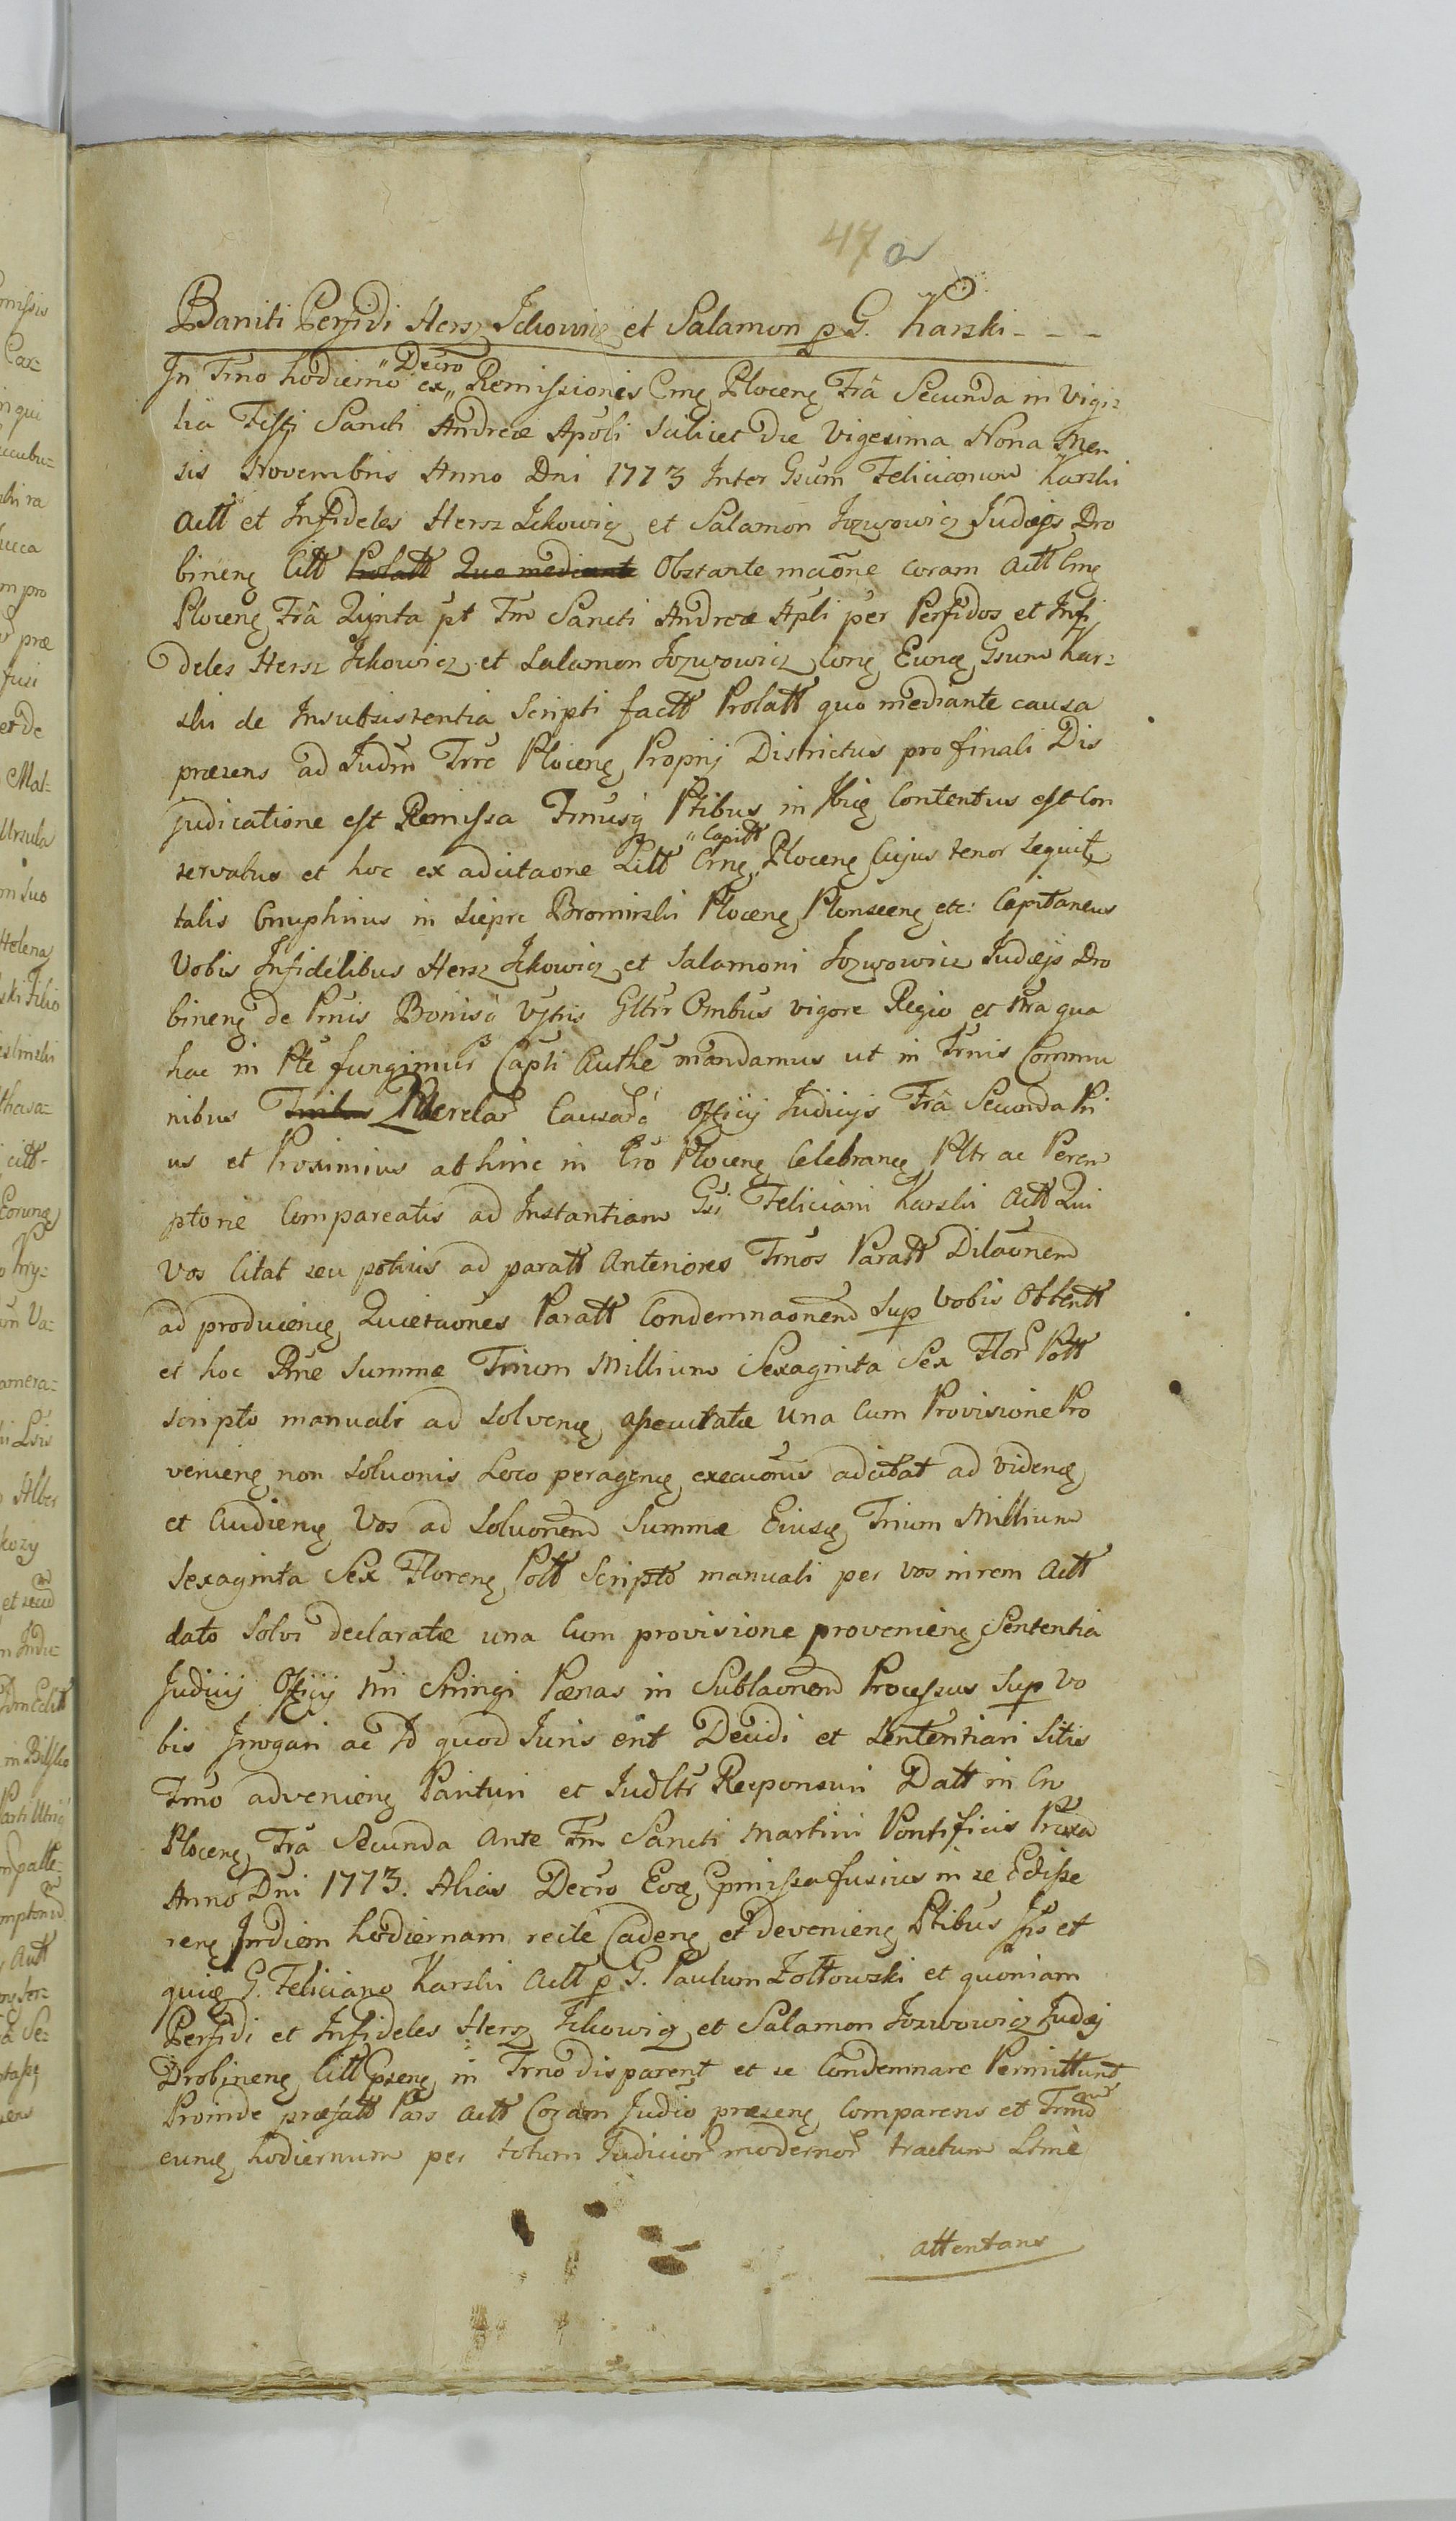 47 a
Baniti Perfidi Hersz Ickowicz et Salamon p G. Karski - - -
In Trno hodierno ex „Decro„ Remissionis Crnę Plocenę Fra Secunda in Vigi-
lia Festi Sancti Andreæ Apoli scilicet Die Vigesima Nona Men
sis Novembris Anno Dni 1773 Inter Gsum Felicianum Karski
Actt et Infideles Hersz Ickowicz et Salamon Jozwowicz Judæjs Dro
binenę Citt Prolatt Quo mediante Obstante mcione coram Actt Crnę
Plocenę Fra Quinta pt Fm Sancti Andreæ Apli per Perfidos et Infi
deles Hersz Ickowicz et Salamon Jozwowicz Conę Eunę Gsum Kar-
ski de Insubsistentia Scripti factt Prolatt quo mediante causa
præsens ad Judm Trre Plocenę Proprij Districtus pro finali Dis
judicatione est Remissa Trnusq Ptibus in Ibię Contentus est Con
servatus et hoc ex adcitaone Litt Crnę „Capitt„ Plocenę Cujus tenor sequitr
talis Onuphrius in Siepre Bromirski Plocenę Plonscenę etc: Capitaneus
Vobis Infidelibus Hersz Ickowicz et Salamoni Jozwowicz Judæjs Dro
binenę de Prnis Bonisq Vstris Gltrr Ombus vigore Regio et Nra qua
hac in Pte fungimur Capti Authe mandamus ut in Trnis Commu
nibus Trnibus Querelar Causarq Officij Judicijs Fra Secunda Pri
us et Proximius abhinc in Cro Plocenę Celebranę Pltr ac Perem
ptorie Compareatis ad Instantiam Gsi Feliciani Karski Actt Qui
Vos Citat seu potius ad paratt Anteriores Trnos Paratt Dilaonem
ad producenę Quietaones Paratt Condemnaonem Sup Vobis Obtentt
et hoc Rne Summæ Trium Millium Sexaginta Sex Flor Poll
scripto manuali ad solvenę assecuratæ una Cum Provisione Pro
venienę non soluonis Loco peragenę execuonis adcitat ad videnę
et Audienę Vos ad Soluonem Summæ Eiusę Trium Millium
Sexaginta Sex Florenę Poll Scripto manuali per vos in rem Actt
dato Solvi declaratæ una Cum provisione provenienę Sententia
Judicij Officij Nri Stringi Pœnas in Sublaonem Processus Sup Vo
bis Irrogari ac Id quod Juris erit Decidi et Sententiari Sitis
Trno advenienę Parituri et Judltr Responsuri Datt in Cro
Plocenę Fra Secunda Ante Fm Sancti Martini Pontificis Proxa
Anno Dni 1773. Alias Decro Eoę Præmissa fusius in se Edisse
renę In diem hodiernam recte Cadenę et devenienę Ptibus Ips et
quię G. Feliciano Karski Actt p G. Paulum Zołtowski et quoniam
Perfidi et Infideles Hersz Ickowicz et Salamon Jozwowicz Judæj
Drobinenę Citt Præsenę in Trno disparent et se Condemnare Permittunt
Proinde præfatt Pars Actt Coram Judio præsenę Comparens et Trnum
eunę hodiernum per totum Judicior modernor tractum Ltme
attentans